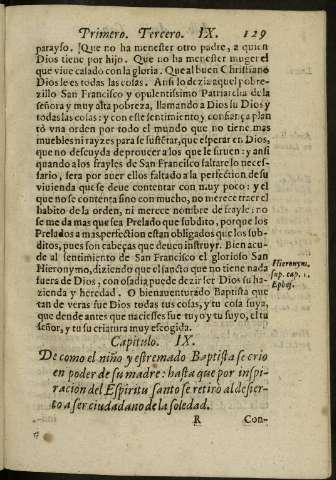 Primero. Tercero. IX. 129
parayso. !Que no ha menester otro padre, a quien
Dios tiene por hijo. Que no ha menester muger el
que viue calado con la gloria. Que al buen Christiano
Dios le es todas las cosas. Ansi lo dezia aquel pobre-
zillo San Francisco y opulentissimo Patriarcha de la
señora y muy alta pobreza, llamando a Dios su Dios y
todas las cosas: y con este sentimiento y confiança plan
tò vna orden por todo el mundo que no tiene mas
muebles ni rayzes para se sustẽtar, que esperar en Dios,
que no descuyda de proueer a los que le siruen: y ansi
quando a los frayles de San Francisco faltare lo neces-
sario, sera por auer ellos faltado a la perfection de su
viuienda que se deue contentar con muy poco: y el
que no se contenta sino con mucho, no merece traer el
habito de la orden, ni merece nombre de frayle: no
se me da mas que sea Prelado que subdito, porque los
Prelados a mas perfection estan obligados que los sub-
ditos, pues son cabeças que deuen instruyr. Bien acu-
de al sentimiento de San Francisco el glorioso San
Hieronymo, diziendo que el sancto que no tiene nada
fuera de Dios, con osadia puede dezir ser Dios su ha-
zienda y heredad. O bienauenturado Baptista que
tan de veras fue Dios todas tus cosas, y tu cosa suya,
que dende antes que naciesses fue tuyo y tu suyo, el tu
señor, y tu su criatura muy escogida.
Hieronym.
sup. cap. 1.
Ephes.
Capitulo. IX.
De como el niño y estremado Baptista se crio
en poder de su madre: hasta que por inspi-
racion del Espiritu santo se retirò al desier-
to a ser ciudadano de la soledad.
R Con-